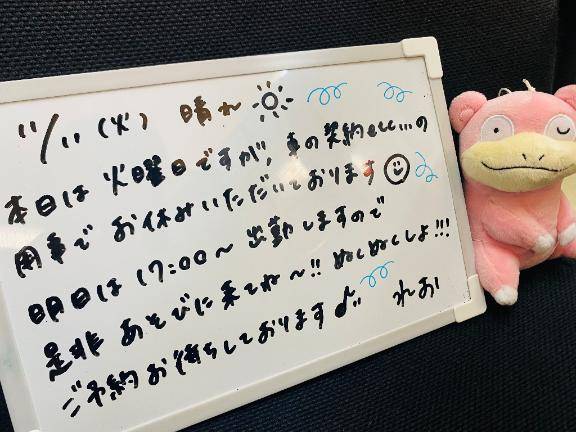 11/11(火) 晴れ
本日は火曜日ですが、車の契約etc...の
用事でお休みいただいております
明日は17:00〜出勤しますので
是非あそびに来てね〜!! ぬくぬくしよ!!!
ご予約お待ちしております♪ れお